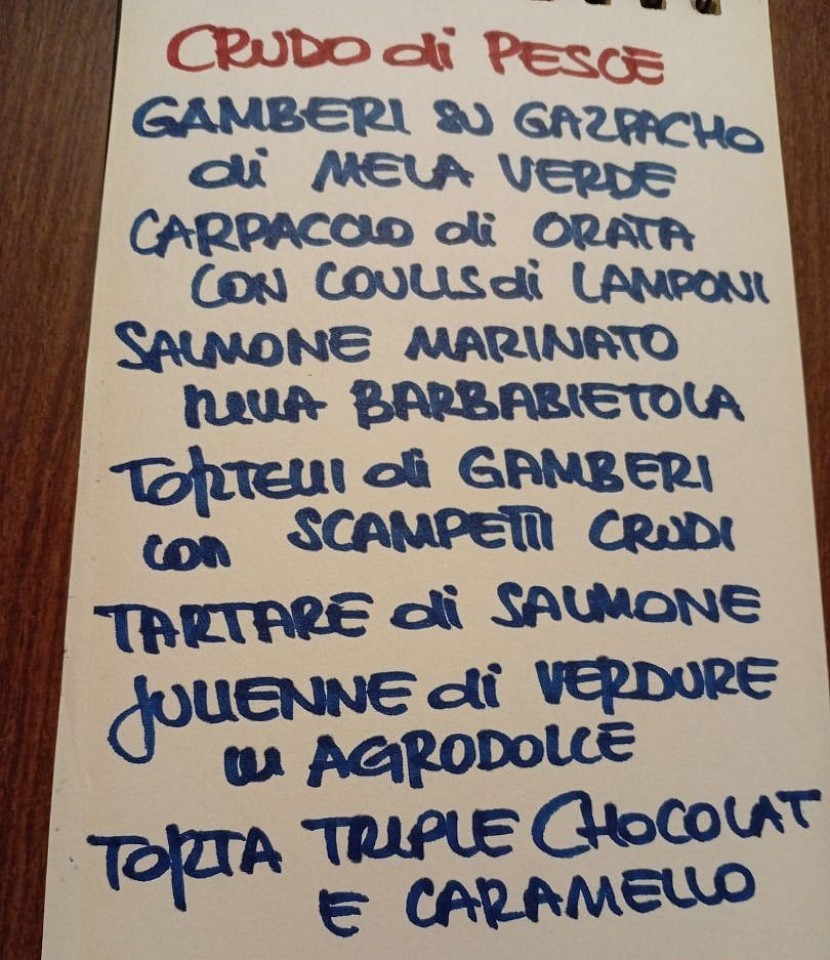 CRUDO di PESCE
GAMBERI SU GAZPACHO
di MELA VERDE
CARPACCIO di ORATA
CON COULIS di LAMPONI
SALMONE MARINATO
nella BARBABIETOLA
TORTELLI di GAMBERI
con SCAMPETTI CRUDI
TARTARE di SALMONE
JULIENNE di VERDURE
in AGRODOLCE
TORTA TRIPLE CHOCOLAT
E CARAMELLO